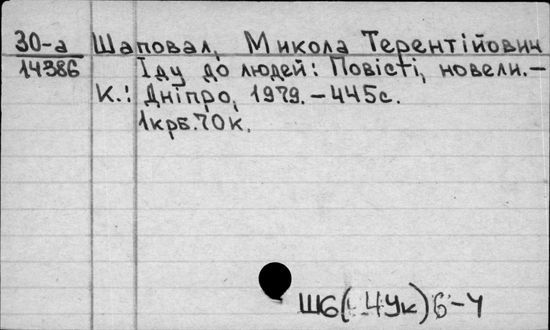 30-а Шаповал, Микола Терентійович
14386 Іду до людей: Повісті, новели.–
К.: Дніпро, 1979.–445с.
1крб.70к.
Ш6(4Ук)6-4